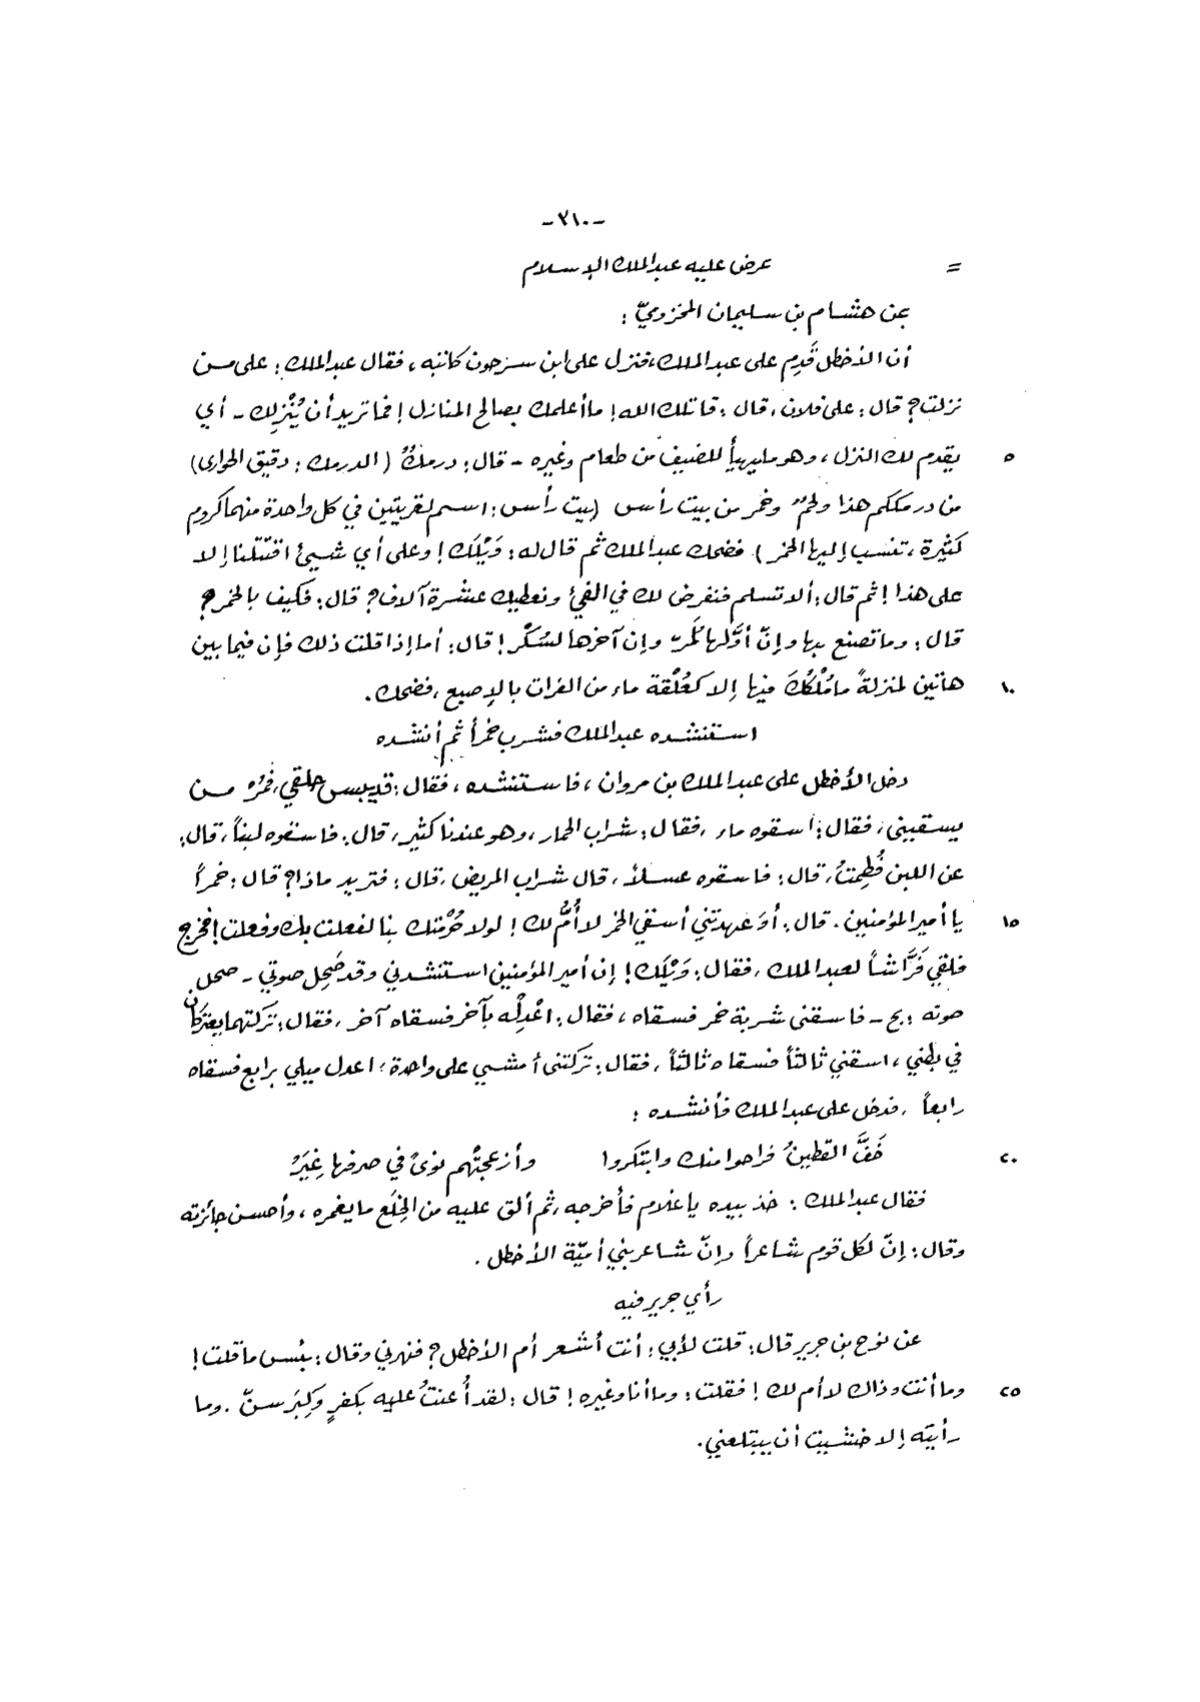 -٣١٠-
= عرض عليه عبدالملك الإسلام
عن هشام بن سليمان المخزوميّ :
أن الأخطل قَدِم على عبدالملك، فنزل على ابن سرجون كاتبه ، فقال عبدالملك : على من
نزلت؟ قال : على فلان ، قال : قاتلك الله! ما أعلمك بصالح المنازل! فما تريد أن يُنْزِلك - أي
٥ يقدم لك النزل ، وهو ما يهيأ للضيف من طعام وغيره - قال : درمكٌ (الدرمك : دقيق الحوارى)
من درمككم هذا ولحمٌ وخمر من بيت رأس (بيت رأس : اسم لقريتين في كل واحدة منهما كروم
كثيرة ، تنسب إليها الخمر) فضحك عبدالملك ثم قال له : وَيْلَك! وعلى أي شيئ اقتتلنا إلا
على هذا! ثم قال : ألا تسلم فنفرض لك في الفيئ ونعطيك عشرة آلاف؟ قال : فكيف بالخمر؟
قال : وما تصنع بها وإنّ أوَّلها لَمُرّ وإن آخرها لسُكْر! قال : أما إذا قلت ذلك فإن فيما بين
١٠ هاتين لمنزلةً ما مُلْكُكَ فيها إلا كعُلْقة ماء من الفرات بالإصبع ، فضحك .
استنشده عبدالملك فشرب خمراً ثم أنشده
دخل الأخطل على عبدالملك بن مروان ، فاستنشده ، فقال : قد يبس حلقي ، فمُرْ من
يسقيني ، فقال : اسقوه ماء ، فقال : شراب الحمار ، وهو عندنا كثير ، قال : فاسقوه لبناً ، قال :
عن اللبن فُطِمتُ ، قال : فاسقوه عسلاً ، قال شراب المريض ، قال : فتريد ماذا؟ قال : خمراً
١٥ يا أمير المؤمنين . قال : أوَعهدتني أسقي الخمر لا أُمَّ لك! لولا حُرْمتك بنا لفعلت بك وفعلت! فخرج
فلقي فَرَّاشاً لعبدالملك ، فقال : وَيْلَك! إن أمير المؤمنين استنشدني وقد صَحِل صوتي - صحل
صوته : بح - فاسقني شربة خمر فسقاه ، فقال : اعْدِلْه بآخر فسقاه آخر ، فقال : تركتهما يعتركان
في بطني ، اسقني ثالثاً فسقاه ثالثاً ، فقال : تركتني أمشي على واحدة ، اعدل ميلي برابع فسقاه
رابعاً ، فدخل على عبدالملك فأنشده :
٢٠ خَفَّ القطينُ فراحوا منك وابتكروا وأزعجتْهم نوىً في صرفها غِيَرُ
فقال عبدالملك : خذ بيده يا غلام فأخرجه ، ثم ألق عليه من الخِلَع ما يغمره ، وأحسن جائزته
وقال : إنّ لكل قوم شاعراً وإنّ شاعر بني أميّة الأخطل .
رأي جرير فيه
عن نوح بن جرير قال : قلت لأبي : أنت أشعر أم الأخطل؟ فنهرني وقال : بئس ما قلت!
٢٥ وما أنت وذاك لا أم لك! فقلت : وما أنا وغيره! قال : لقد أُعنتُ عليه بكفرٍ وكِبَر سنّ . وما
رأيته إلا خشيت أن يبتلعني .